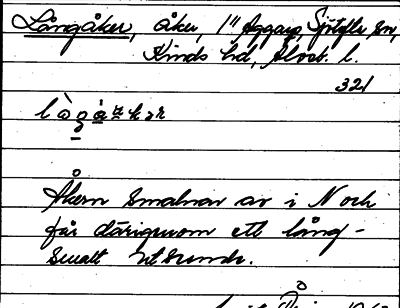 Långåker, åker, 1" Aggarp, Sjötofta sn,
Kinds hd, Älvsb. l.
321
Åkern smalnar av i N och
får därigenom ett lång-
smalt utseende.